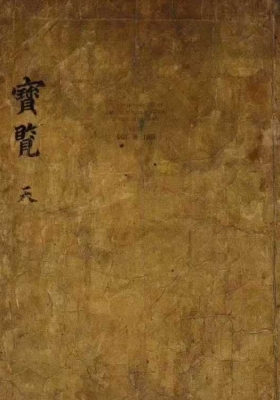 寶覽
天